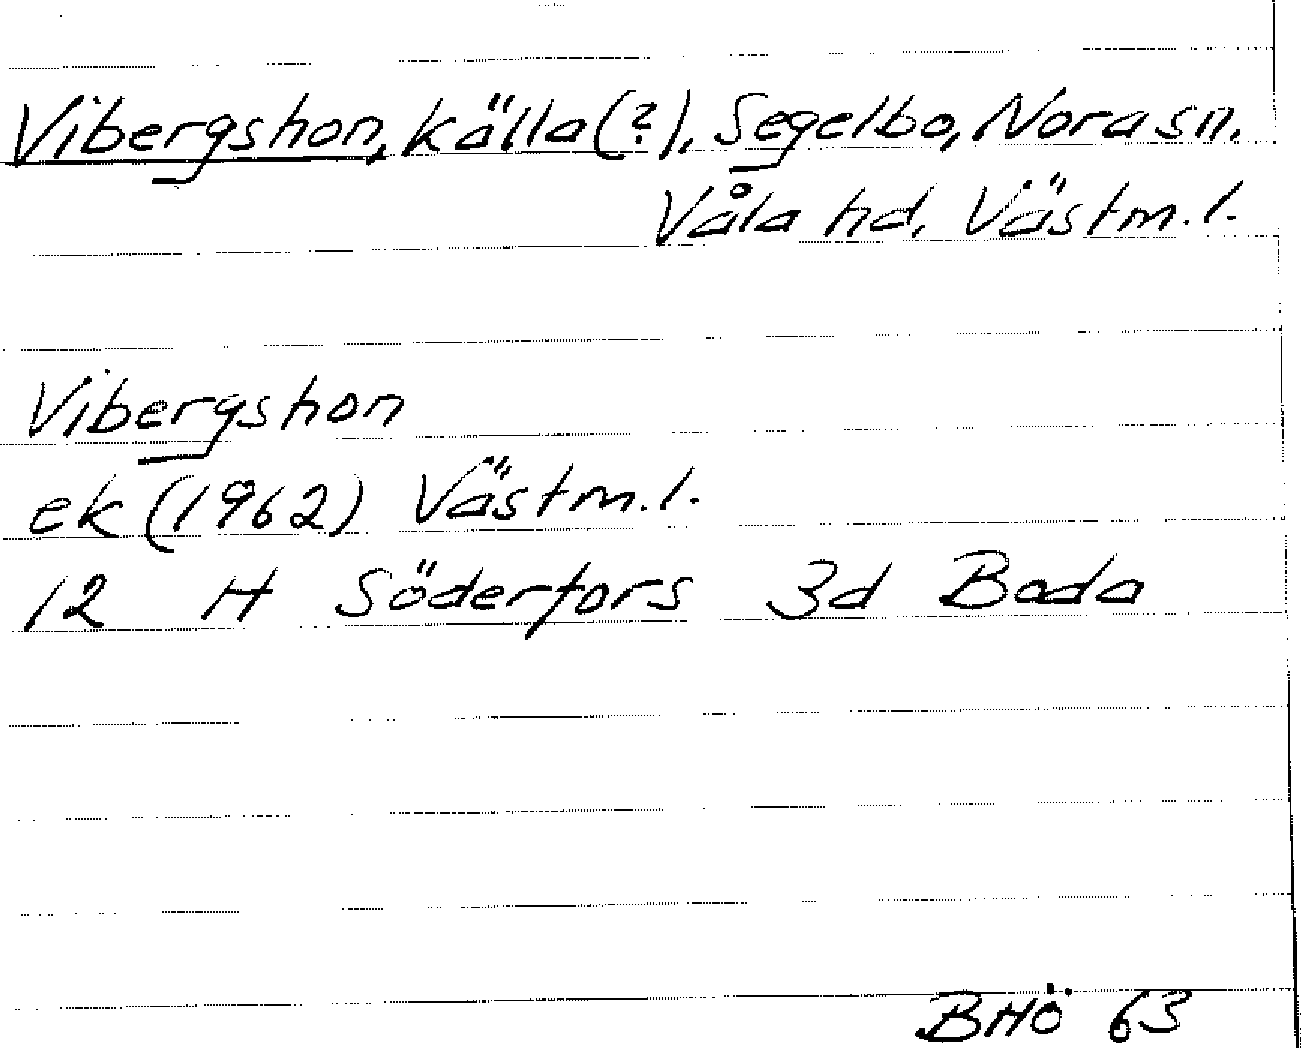 Vibergshon, källa (?), Segelbo, Nora sn.
Våla hd, Västm. l.
Vibergshon
ek (1962) Västm. l.
12 H Söderfors 3d Boda
BHÖ 63